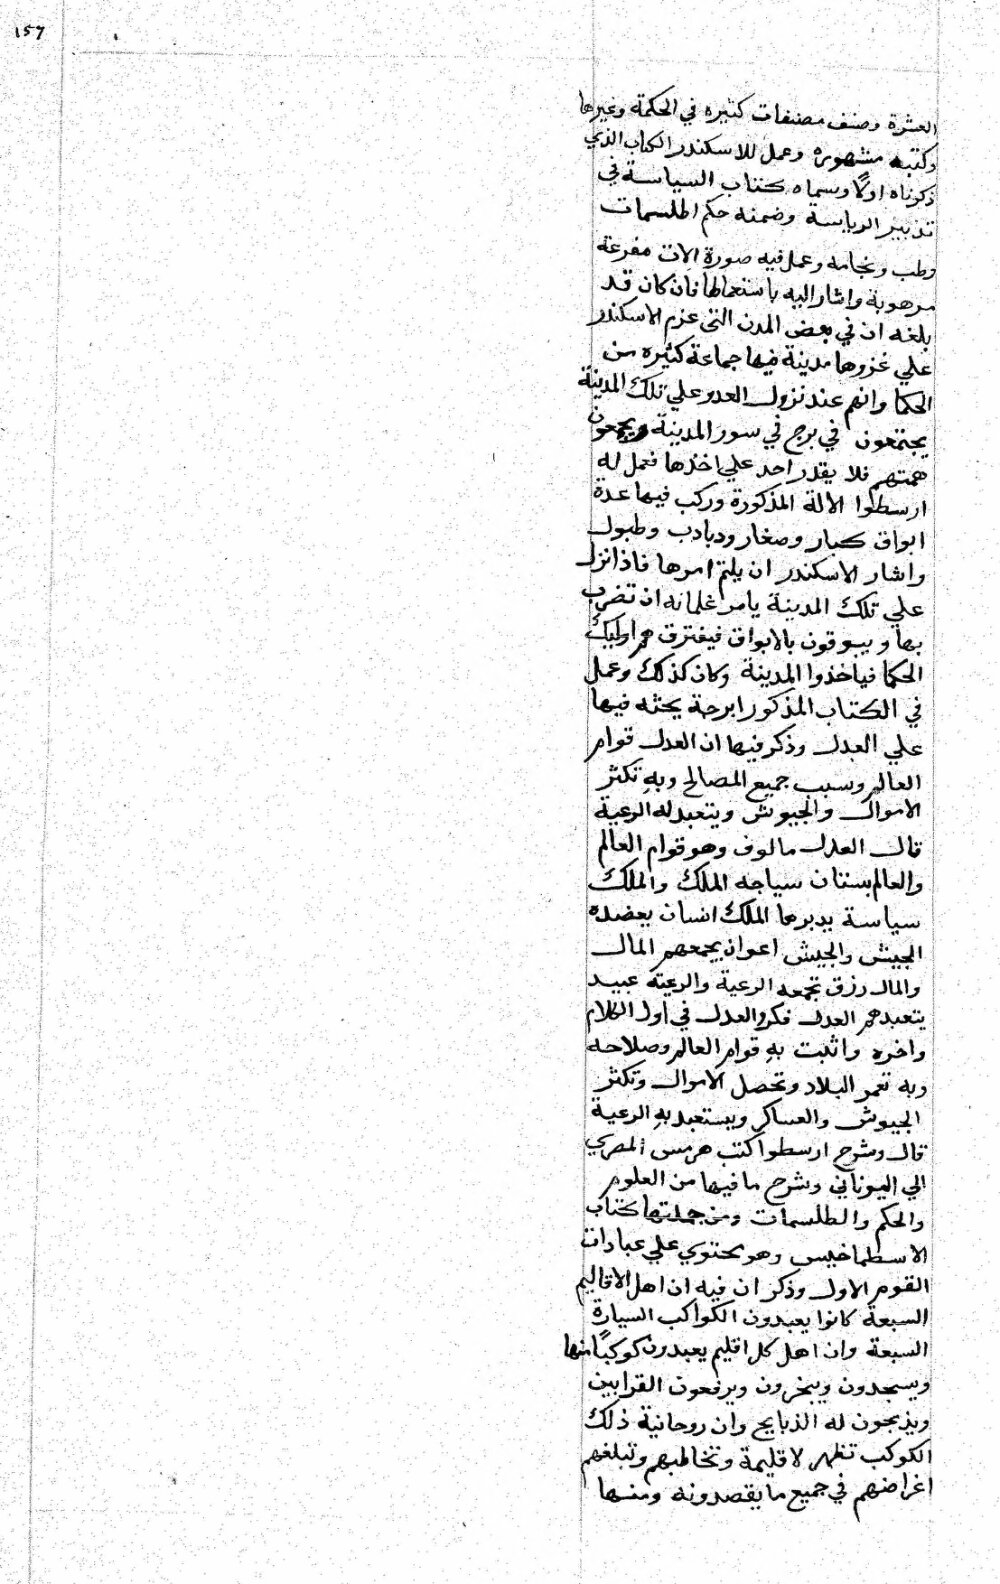 157
العشرة وصنف مصنفات كثيره في الحكمة وغيرها
وكتبه مشهوره وعمل للاسكندر الكتاب الذي
ذكرناه اولًا وسماه كتاب السياسة في
تدبير الرياسة وضمنه حكم اطلسمات
وطب ونجامه وعمل فيه صورة الات مفزعة
مرهوبة واشار اليه باستعمالها فان كان قد
بلغه ان في بعض المدن التي عزم الاسكندر
علي غزوها مدينة فيها جماعة كثيره من
الحكما وانهم عند نزول العدو علي تلك المدينة
يجتمعون في برج في سور المدينة ويجمعون
همتهم فلا يقدر احد علي اخذها فعمل له
ارسطوا الالة المذكورة وركب فيها عدة
ابواق كبار وصغار ودبادب وطبول
واشار الاسكندر ان يلتم امرها فاذا نزل
علي تلك المدينة يامر غلمانه ان تضرب
بها ويبوقون بالابواق فيفترق هم اوليك
الحكما فياخذوا المدينة وكان كذلك وعمل
في الكتاب المذكور ابرجة يحثه فيها
علي العدل وذكر فيها ان العدل قوام
العالم وسبب جميع المصالح وبه تكثر
الاموال والجيوش ويتعبد له الرعية
قال العدل مالوف وهو قوام العالم
والعالم بستان سياجه الملك والملك
سياسة يدبرها الملك انسان يعضده
الجيش والجيش اعوان يجمعهم المال
والمال رزق تجمعه الرعية والرعية عبيد
يتعبدهم العدل فكرر العدل في اول الكلام
واخره واثبت به قوام العالم وصلاحه
وبه تعمر البلاد وتحصل الاموال وتكثر
الجيوش والعساكر ويستعبد به الرعية
قال وشرح ارسطوا كتب هرمس المصري
الي اليوناني وشرح ما فيها من العلوم
والحكم والطلسمات ومن جملتها كتاب
الاسطماخيس وهو يحتوي علي عبادات
القوم الاول وذكر ان فيه ان اهل الاقاليم
السبعة كانوا يعبدون الكواكب السيارة
السبعة وان اهل كل اقليم يعبدون كوكبًا منها
ويسجدون ويبخرون ويرفعون القرابين
ويذبحون له الذبايح وان روحانية ذلك
الكوكب تظهر لاقليمة وتخاطبهم وتبلغهم
اغراضهم في جميع ما يقصدونه ومنها